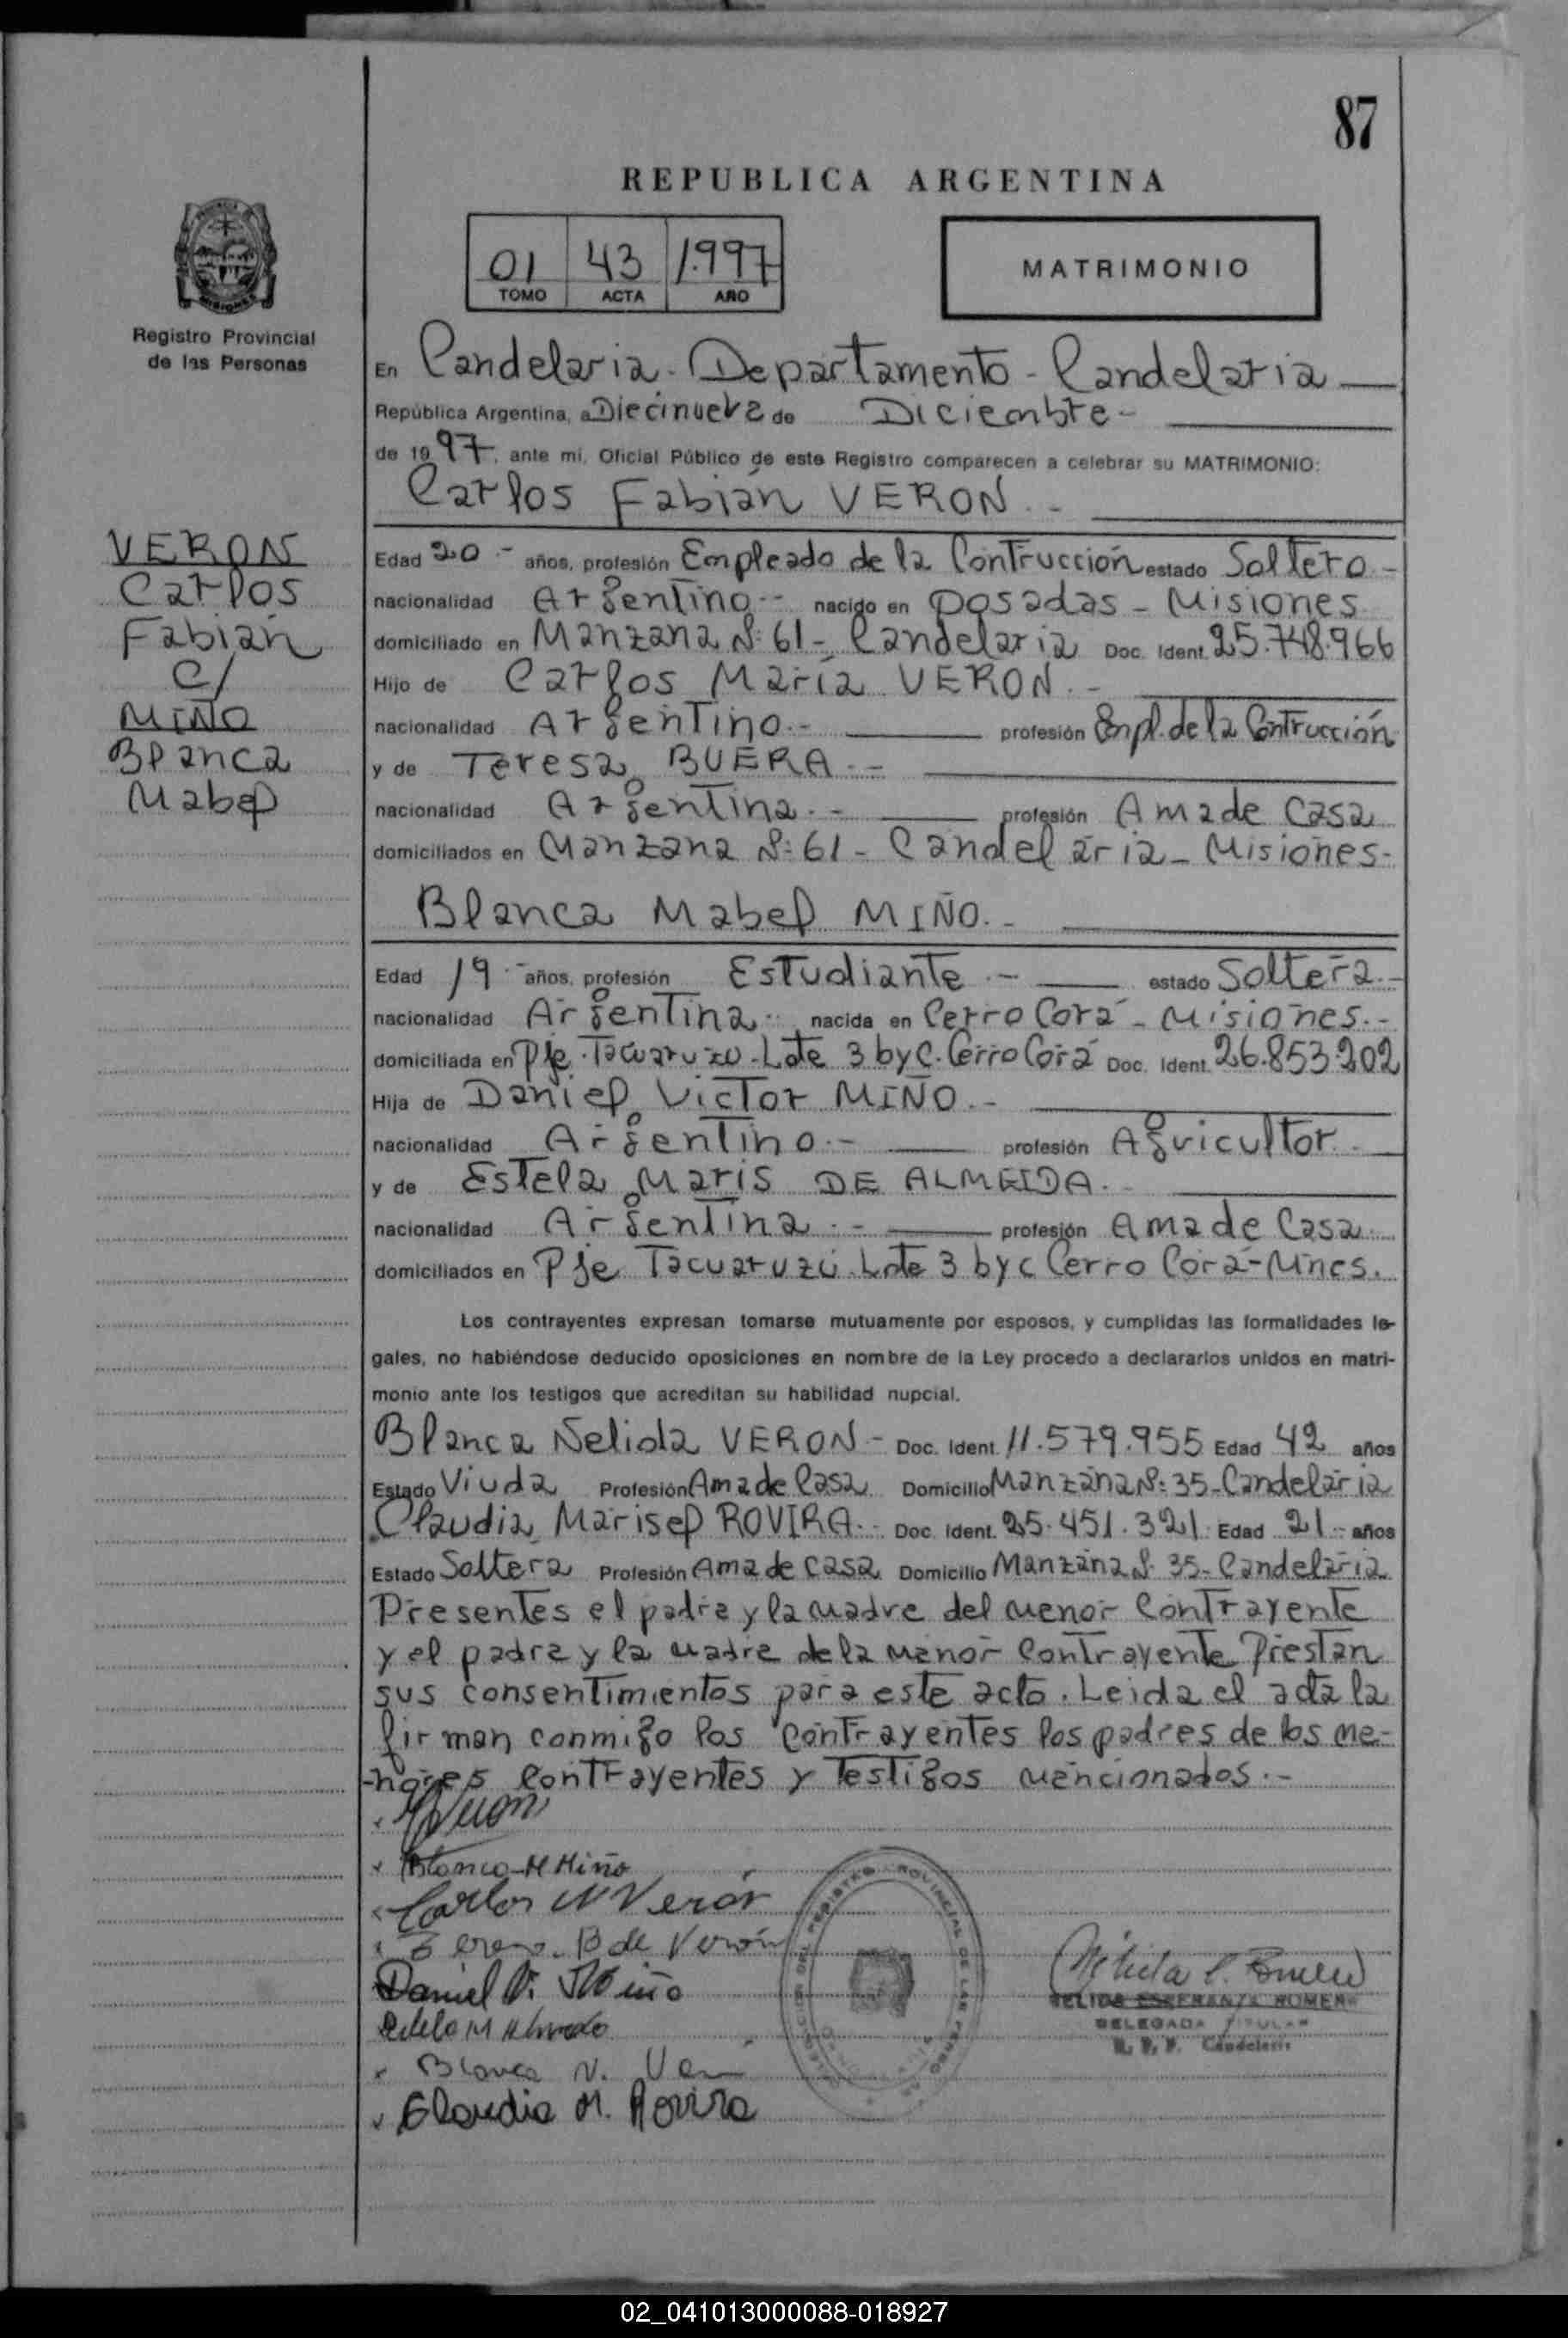 87
REPUBLICA ARGENTINA
01 43 1.997
TOMO ACTA AÑO
MATRIMONIO
Registro Provincial
de las Personas
En Candelaria - Departamento - Candelaria
República Argentina, a Diecinueve de Diciembre -
de 19 97, ante mí, Oficial Público de este Registro comparecen a celebrar su MATRIMONIO:
Carlos Fabián VERON. -
VERON
Carlos
Fabián
C/
MIÑO
Blanca
Mabel
Edad 20 .- años, profesión Empleado de la Contrucción estado Soltero -
nacionalidad Argentino -- nacido en Posadas - Misiones
domiciliado en Manzana Nº: 61 - Candelaria Doc. Ident. 25.748.966
Hijo de Carlos María VERON. -
nacionalidad Argentino. - profesión Empl. de la Contrucción
y de Teresa BUERA. -
nacionalidad Argentina. - profesión Ama de Casa
domiciliados en Manzana Nº: 61 - Candelaria - Misiones-
Blanca Mabel MIÑO. -
Edad 19 .- años, profesión Estudiante .- estado Soltera. -
nacionalidad Argentina. nacida en Cerro Corá - Misiones. -
domiciliada en Pje. Tacuaruzú - Lote 3 b y C. Cerro Corá Doc. Ident. 26.853.202
Hija de Daniel Victor MIÑO. -
nacionalidad Argentino. - profesión Agricultor.
y de Estela Maris DE ALMEIDA.
nacionalidad Argentina. - profesión Ama de Casa.
domiciliados en Pje Tacuaruzú. Lote 3 b y c Cerro Corá - Mnes.
Los contrayentes expresan tomarse mutuamente por esposos, y cumplidas las formalidades le-
gales, no habiéndose deducido oposiciones en nombre de la Ley procedo a declararlos unidos en matri-
monio ante los testigos que acreditan su habilidad nupcial.
Blanca Nelida VERON - Doc. Ident. 11.579.955 Edad 42 años
Estado Viuda Profesión Ama de Casa Domicilio Manzana Nº: 35 - Candelaria
Claudia Marisel ROVIRA. - Doc. Ident. 25.451.321 Edad 21 - años
Estado Soltera Profesión Ama de casa Domicilio Manzana Nº 35 - Candelaria
Presentes el padre y la madre del menor Contrayente
y el padre y la madre de la menor Contrayente Prestan
sus consentimientos para este acto. Leida el acta la
firman conmigo los Contrayentes los padres de los me-
-nores Contrayentes y Testigos mencionados. -
Blanca M Miño
Carlos M Verón
Teresa B de Verón
Daniel V. Miño
Blanca N.
Claudia M. Rovira
Nélida E. Romero
NELIDA ESPERANZA ROMERO
DELEGADA TITULAR
R. P. P. Candelaria
REGISTRO PROVINCIAL DE LAS PERSONAS
02_041013000088-018927